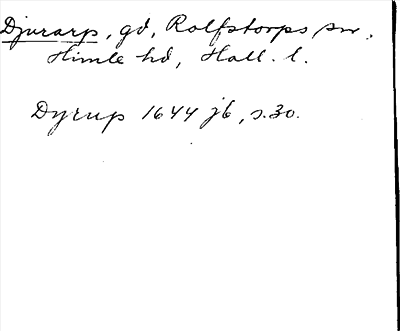 Djurarp, gd, Rolfstorps sn,
Himle hd, Hall. l.
Dyrup 1644 jb, s. 30.